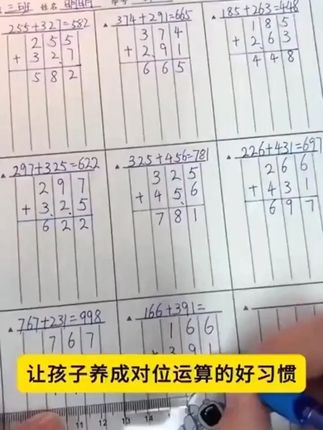 三班 姓名
255+327=582
255
+327
582
374+291=665
374
+291
665
185+263=448
185
+263
448
297+325=622
297
+325
622
325+456=781
325
+456
781
226+431=697
266
+431
697
767+231=998
767
166+391=
166
+391
让孩子养成对位运算的好习惯
11 12 13 14